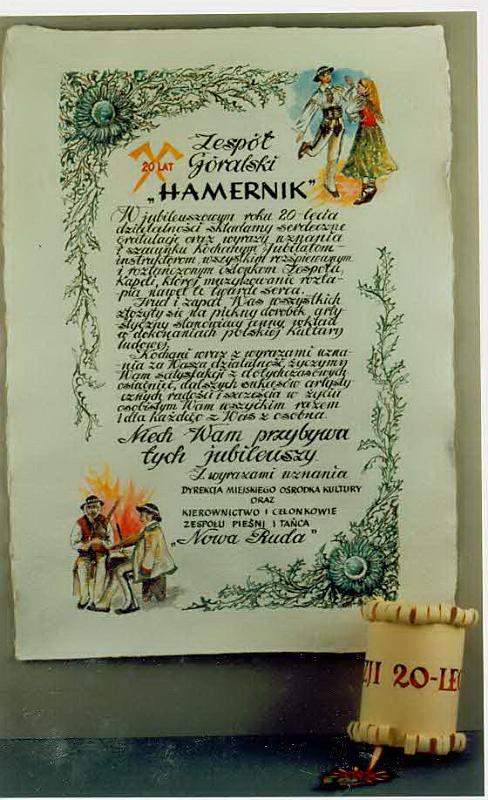 20 LAT
Zespół
Góralski
„HAMERNIK”
W jubileuszowym roku 20-lecia
działalności składamy serdeczne
gratulacje oraz wyrazy uznania
i szacunku Kochanym Jubilatom -
instruktorom, wszystkim rozśpiewanym
i roztańczonym członkom Zespołu,
Kapeli, której muzykowanie rozta-
pia nawet te twarde serca.
Trud i zapał Was wszystkich
złożyły się na piękny dorobek arty-
styczny stanowiący cenny wkład
w dokonaniach polskiej kultury
ludowej.
Kochani wraz z wyrazami uzna-
nia za Waszą działalność, życzymy
Wam satysfakcji z dotychczasowych
osiągnięć, dalszych sukcesów artysty-
cznych radości i szczęścia w życiu
osobistym Wam wszystkim razem
i dla każdego z Was z osobna.
Niech Wam przybywa
tych jubileuszy.
Z wyrazami uznania
DYREKCJA MIEJSKIEGO OŚRODKA KULTURY
ORAZ
KIEROWNICTWO I CZŁONKOWIE
ZESPOŁU PIEŚNI I TAŃCA
„Nowa Ruda”
ZJI 20-LE